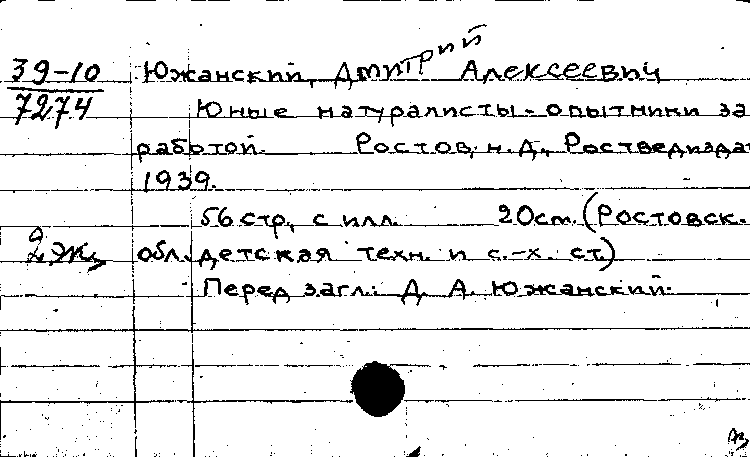 39-10 Южанский, Дмитрий Алексеевич
7274 Юные натуралисты-опытники за
работой. Ростов, н. Д.,
1939.
56 стр, с илл. 20см. (Ростовск.
2 эк, обл. детская техн. и с.-х. ст.)
Перед загл.: Д. А. Южанский.